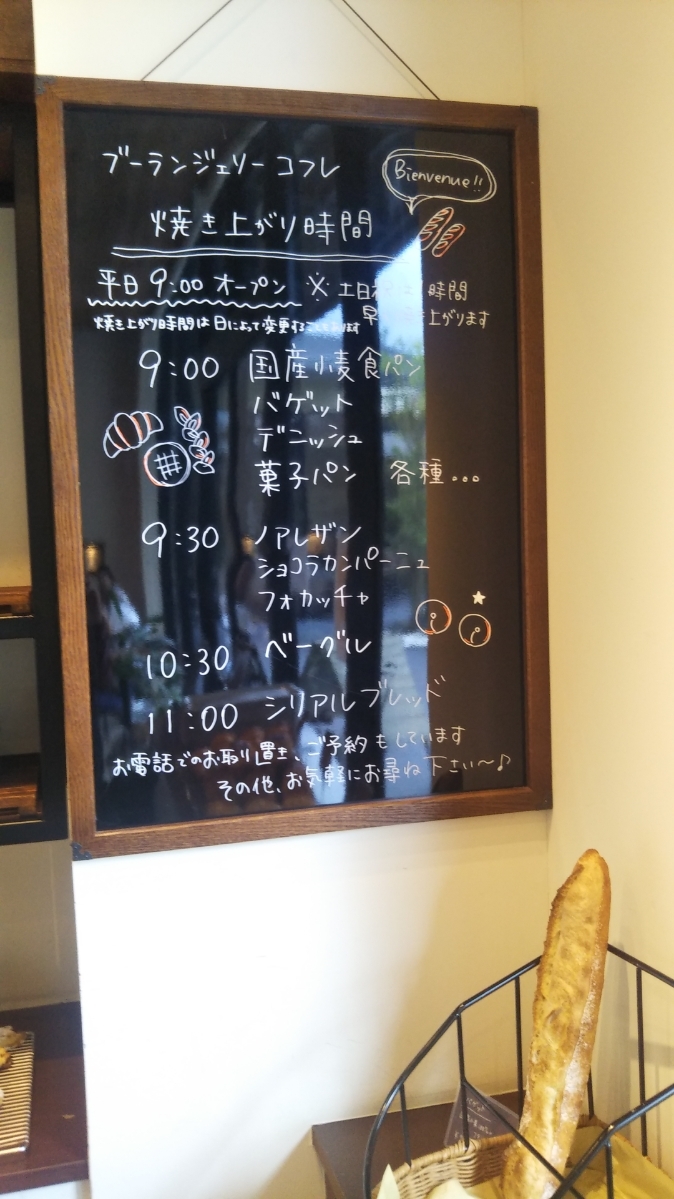 ブーランジェリー コフレ
Bienvenue!!
焼き上がり時間
平日 9:00 オープン ※ 土日 時間
早 上がります
焼き上がり時間は日によって変更することもあります
9:00 国産小麦食パン
バゲット
デニッシュ
菓子パン 各種...
9:30 ノアレザン
ショコラカンパーニュ
フォカッチャ
10:30 ベーグル
11:00 シリアルブレッド
お電話でのお取り置き、ご予約もしています
その他、お気軽にお尋ね下さい〜♪